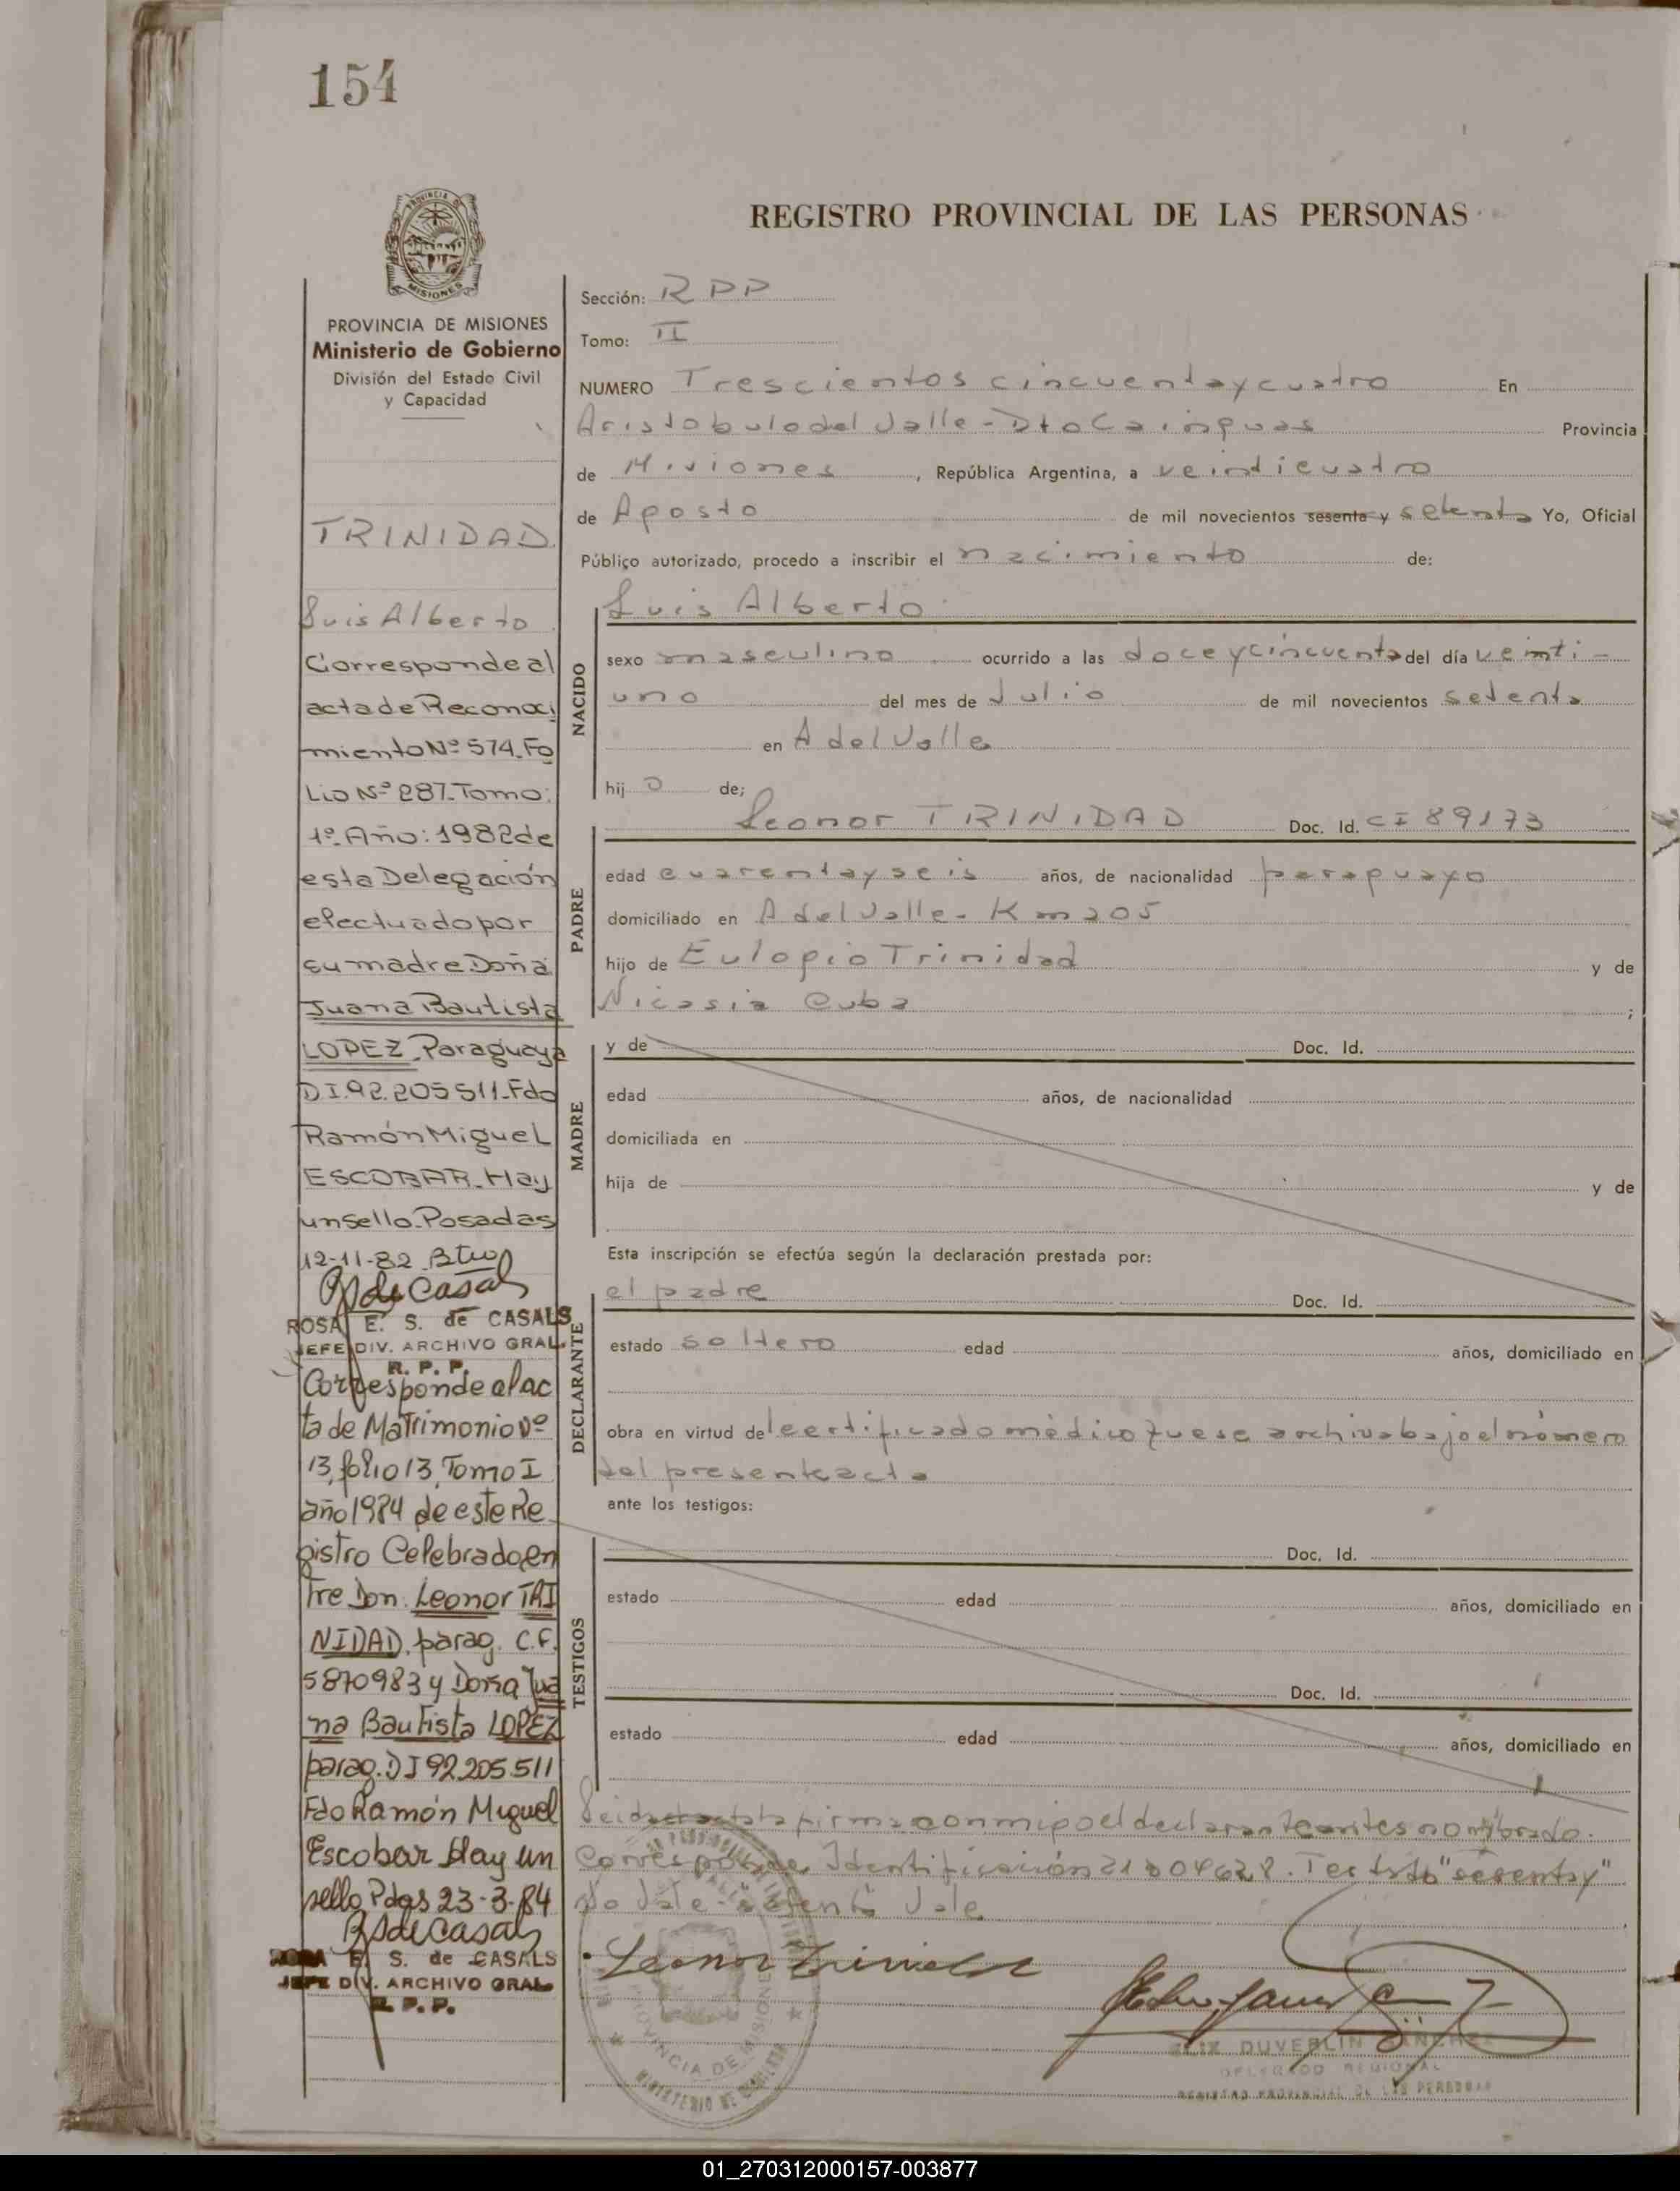 154
REGISTRO PROVINCIAL DE LAS PERSONAS
MISIONES
PROVINCIA DE MISIONES
Ministerio de Gobierno
División del Estado Civil
y Capacidad
TRINIDAD
Luis Alberto
Corresponde al
acta de Reconoci
miento Nº 574. Fo
Lio Nº 287. Tomo:
1º. Año: 1982 de
esta Delegación
efectuado por
su madre Doña
Juana Bautista
LOPEZ. Paraguaya
D.I. 92.205511. Fdo
Ramón Miguel
ESCOBAR. Hay
un Sello. Posadas
12-11-82
RSdeCasals
ROSA E. S. de CASALS
JEFE DIV. ARCHIVO GRAL.
R. P. P.
Corresponde al ac
ta de Matrimonio Nº
13, folio 13, Tomo I
año 1984 de este Re
gistro Celebrado en
tre Don. Leonor TRI
NIDAD, parag. C.F.
5870983 y Doña Jua
na Bautista LOPEZ
parag. DI 92.205.511
Fdo Ramón Miguel
Escobar Hay un
sello Pdas 23-3-84
RSdeCasals
ROSA E. S. de CASALS
JEFE DIV. ARCHIVO GRAL.
R. P. P.
Sección: RPP
Tomo: II
NUMERO Trescientos cincuenta y cuatro En
Aristobulo del Valle - Dto Cainguas Provincia
de Misiones, República Argentina, a veinticuatro
de Agosto de mil novecientos sesenta y setenta Yo, Oficial
Público autorizado, procedo a inscribir el nacimiento de:
Luis Alberto
NACIDO
sexo masculino ocurrido a las doce y cincuenta del día veinti-
uno del mes de Julio de mil novecientos setenta
en A del Valle
hijo de;
Leonor TRINIDAD Doc. Id. CI 89173
PADRE
edad cuarenta y seis años, de nacionalidad paraguayo
domiciliado en A del Valle - Km 205
hijo de Eulogio Trinidad y de
Nicasia Cuba ;
y de Doc. Id.
MADRE
edad años, de nacionalidad
domiciliada en
hija de y de
Esta inscripción se efectúa según la declaración prestada por:
el padre Doc. Id.
DECLARANTE
estado soltero edad años, domiciliado en
obra en virtud del certificado médico que se archiva bajo el número
del presente acta
ante los testigos:
Doc. Id.
TESTIGOS
estado edad años, domiciliado en
Doc. Id.
estado edad años, domiciliado en
Leida el acta la firma conmigo el declarante antes nombrado.
Corresponde Identificación 21304628. Testado "sesenta y"
No Vale - setenta Vale
Leonor Trinidad
PROVINCIA DE MISIONES
DUVERLIN SANCHEZ
DELEGADO REGIONAL
REGISTRO PROVINCIAL DE LAS PERSONAS
01_270312000157-003877